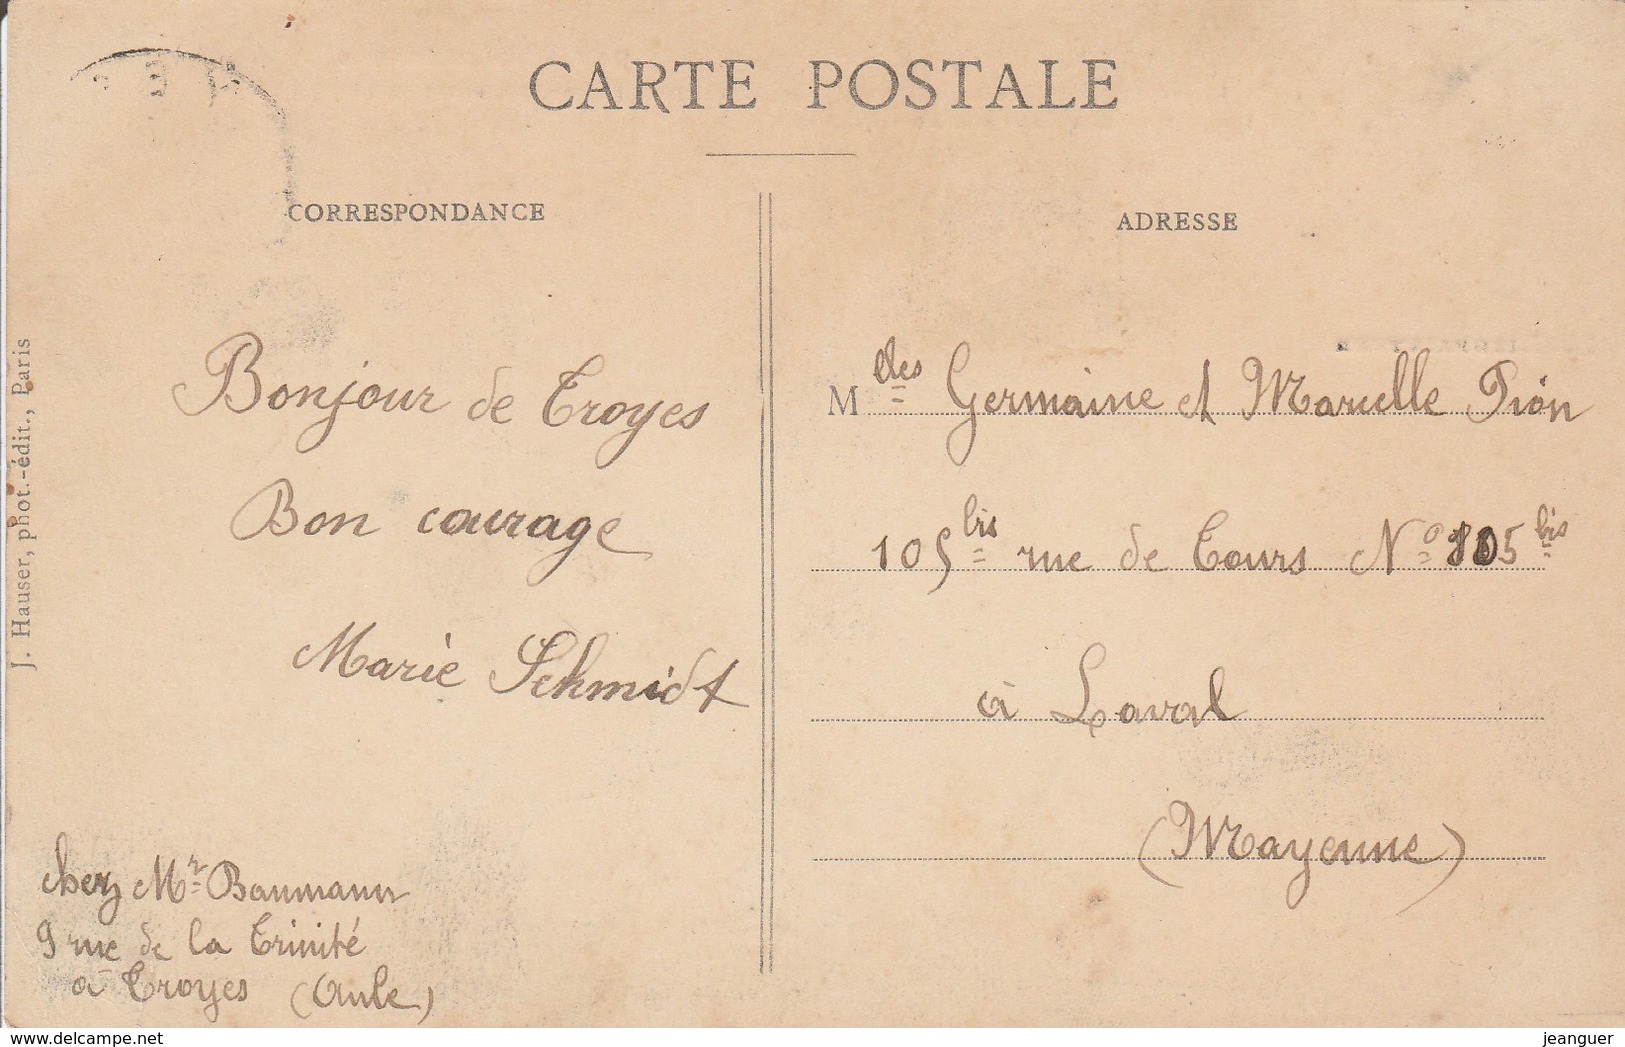 CARTE POSTALE
CORRESPONDANCE
ADRESSE
J. Hauser, phot.-édit., Paris
Bonjour de Troyes
Bon courage
Marie Schmidt
chez Mr Baumann
9 rue de la Trinité
à Troyes (Aube)
Mdes Germaine et Marcelle Pion
105 bis rue de Tours No 105 bis
à Laval
(Mayenne)
www.delcampe.net
jeanguer